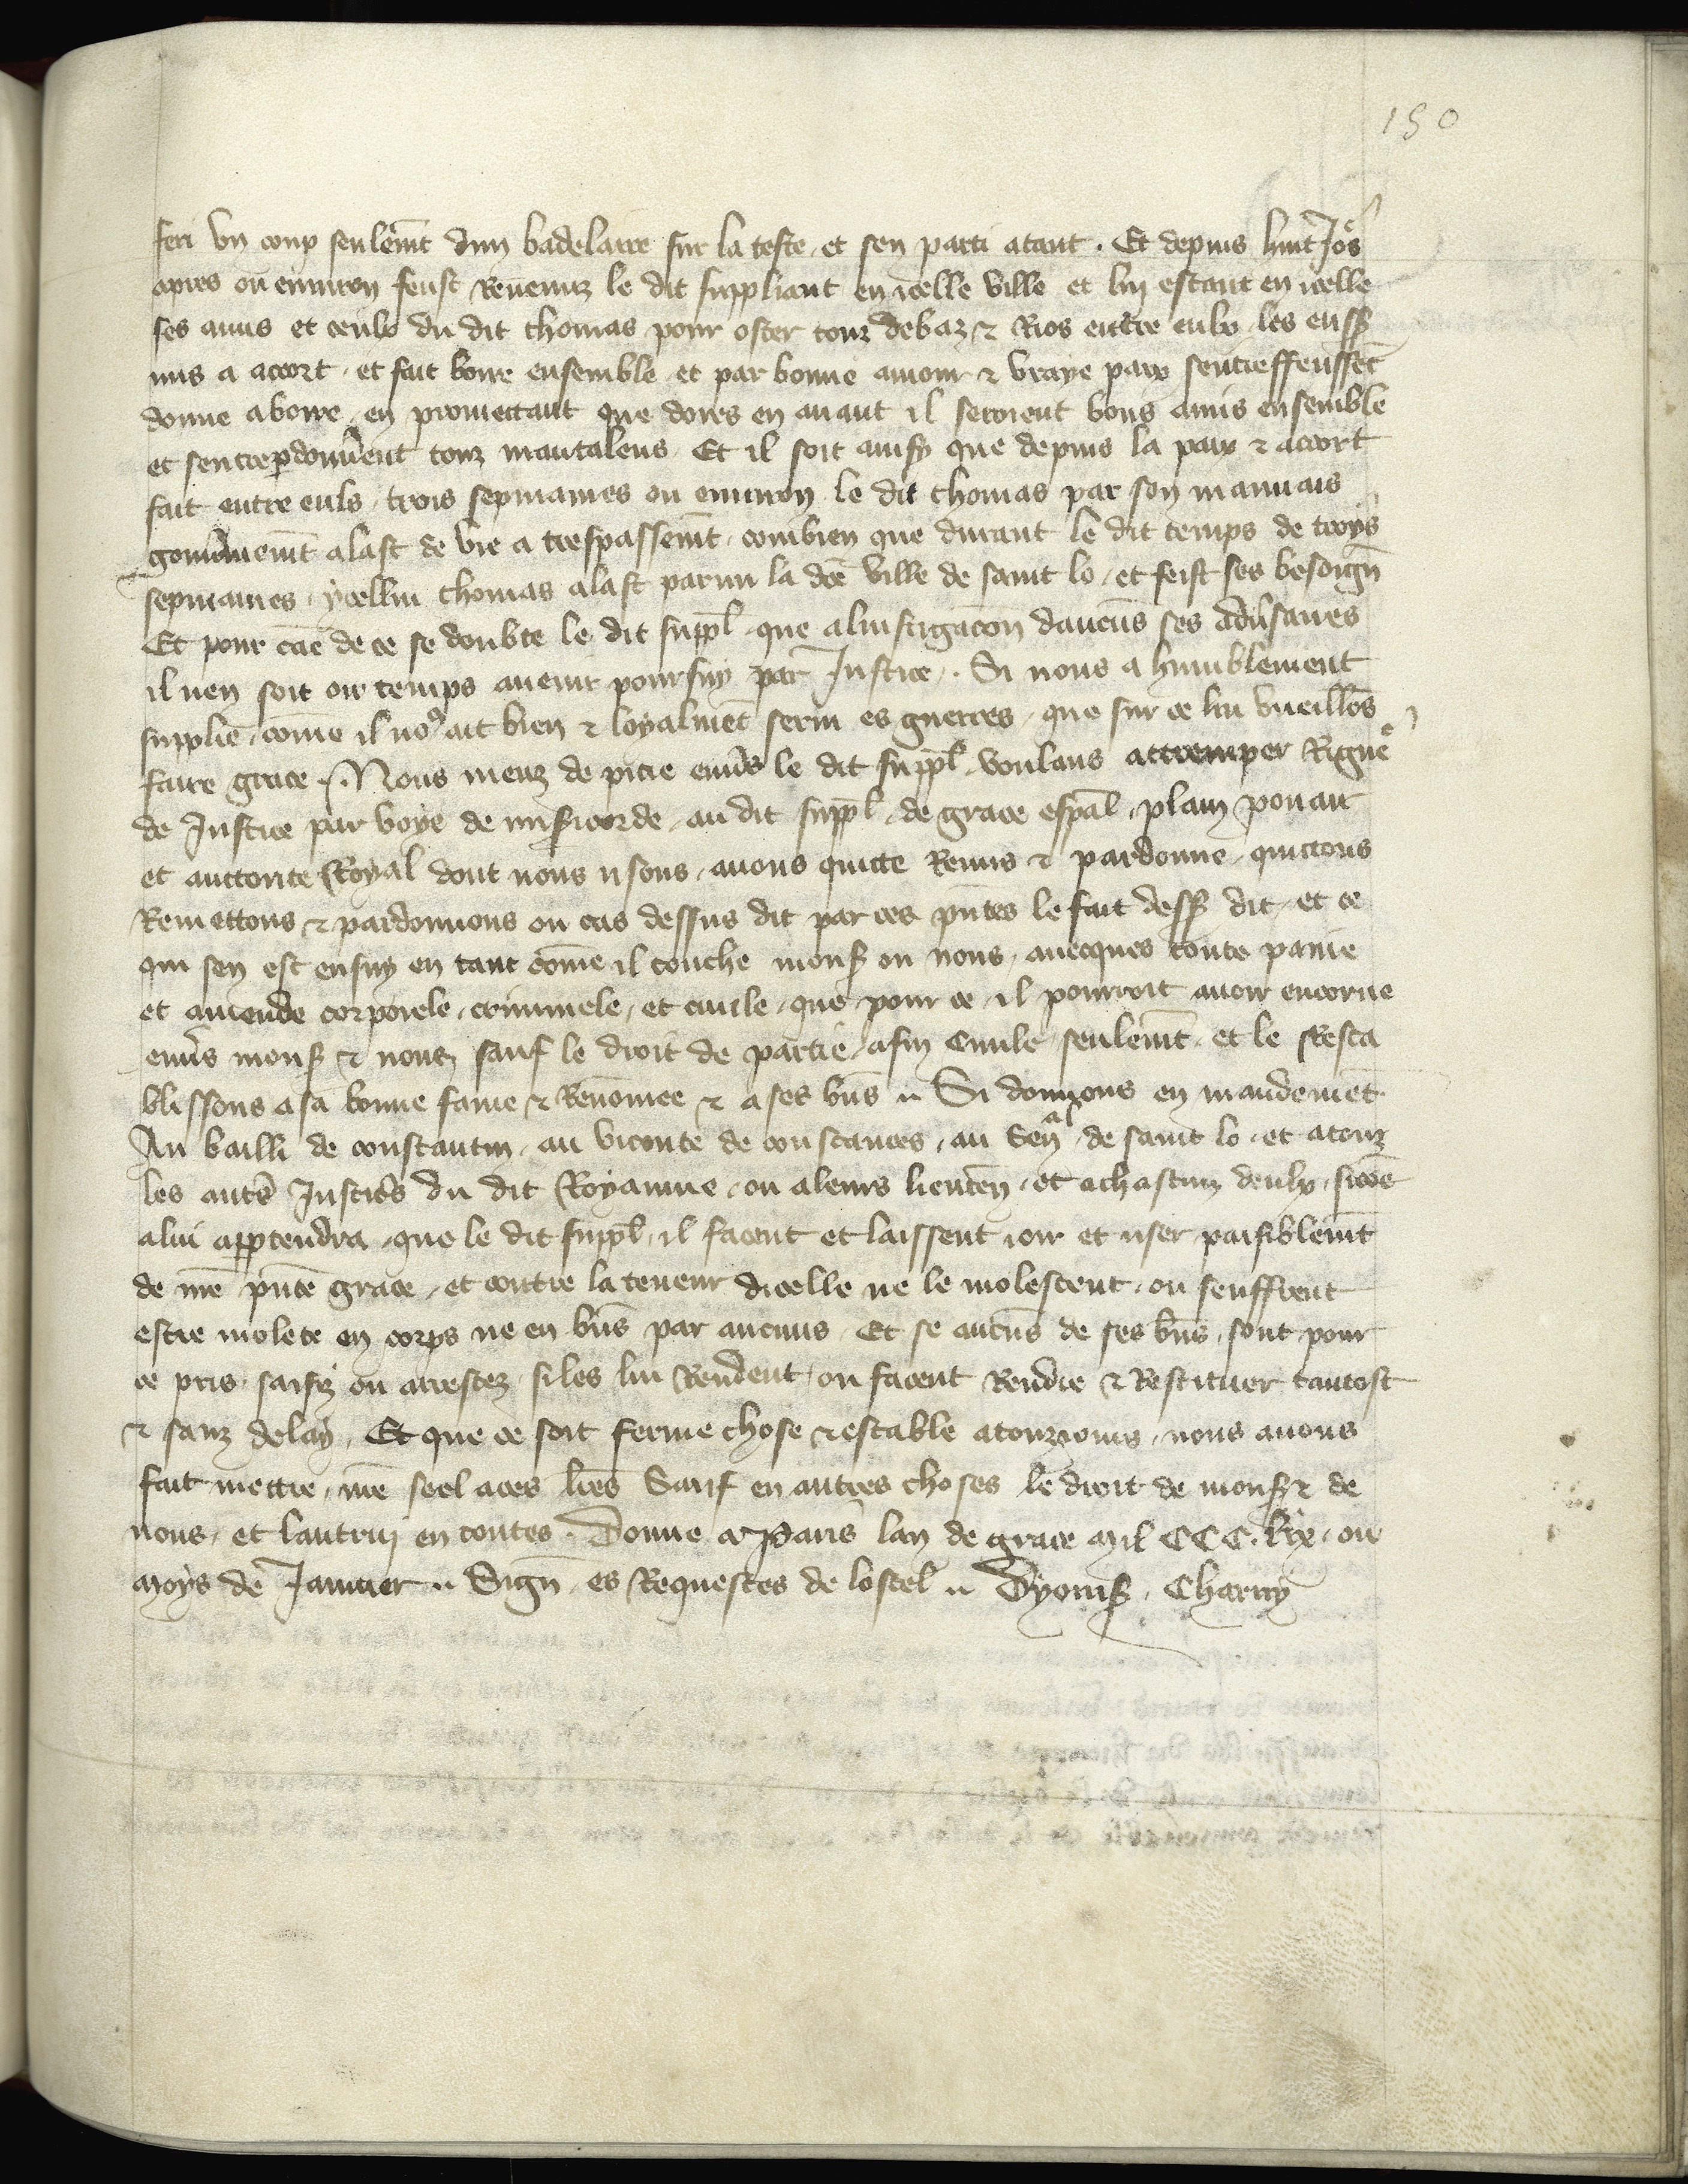 150
feri un coup seulemt dun badelaire sur la teste et sen parti atant. Et depuis huit Jos
apres ou environ feust Revenuz le dit suppliant en icelle ville et luy estant en icelle
ses amis et ceuls du dit thomas pour oster touz debaz & Rios entre eulx les euss
mis a accort et fait boire ensemble et par bonne amour & vraye paix sentreffeussẽt
donne a boire en promettant que dores en avant il seroient bons amis ensemble
et sentrepdonnẽrent touz mautalens Et il soit ainsy que depuis la paix & accort
fait entre euls trois sepmaines ou environ le dit thomas par son mauvais
gouṽnemẽt alast de vie a trespassemt combien que durant le dit temps de troys
sepmaines ycellui thomas alast parmi la dcẽ ville de saint lo et feist ses besoign̄
Et pour cãe de ce se doubte le dit suppl que a linstigacõn daucũs ses adṽsaires
il nen soit ou temps avenir poursuy par Justice. Si nous a humblement
supplie cõme il no9 ait bien & loyalmẽt servi es guerres que sur ce lui vueillõs
faire grace. Nous meuz de pitie enṽs le dit suppl voulans attremper Rigue᷑
de Justice par voye de miscorde au dit suppl de grace espãl plain pouair
et auctorite Royal dont nous usons avons quitte Remis & pardonne quittons
Remettons & pardonnons ou cas dessus dit par ces pñtes le fait dess dit et ce
qui sen est ensuy en tant cõme il touche mons ou nous avecques toute paine
et amende corporele criminele et civile que pour ce il pourroit avoir encorue
enṽs mons & nous sauf le droit de partie afin Civile seulemt et le Resta
blissons a sa bonne fame & Renõmee & a ses biñs Si donnons en mandemẽt
Au bailli de constantin au viconte de constances au Senal de saint lo et a touz
les autẽs Justicẽs du dit Royaume ou a leurs lieutẽn et a chascun deulx sicõe
a lui apptendra que le dit suppl il facent et laissent ioir et user paisiblemt
de nrẽ pñte grace et contre la teneur dicelle ne le molestent ou seuffrent
estre molete en corps ne en biñs par aucuns Et se aucũs de ses biñs sont pour
ce pris saisiz ou arrestez si les lui Rendent ou facent Rendre & Restituer tantost
& sanz delay. Et que ce soit ferme chose & estable a touziours nous avons
fait mettre nrẽ seel a ces lrẽs Sauf en autres choses le droit de mons & de
nous et lautrui en toutes. Donne a Paris lan de grace mil CCC. lix ou
moys de Janvier Sign̄ es Requestes de lostel Dyonis Charny